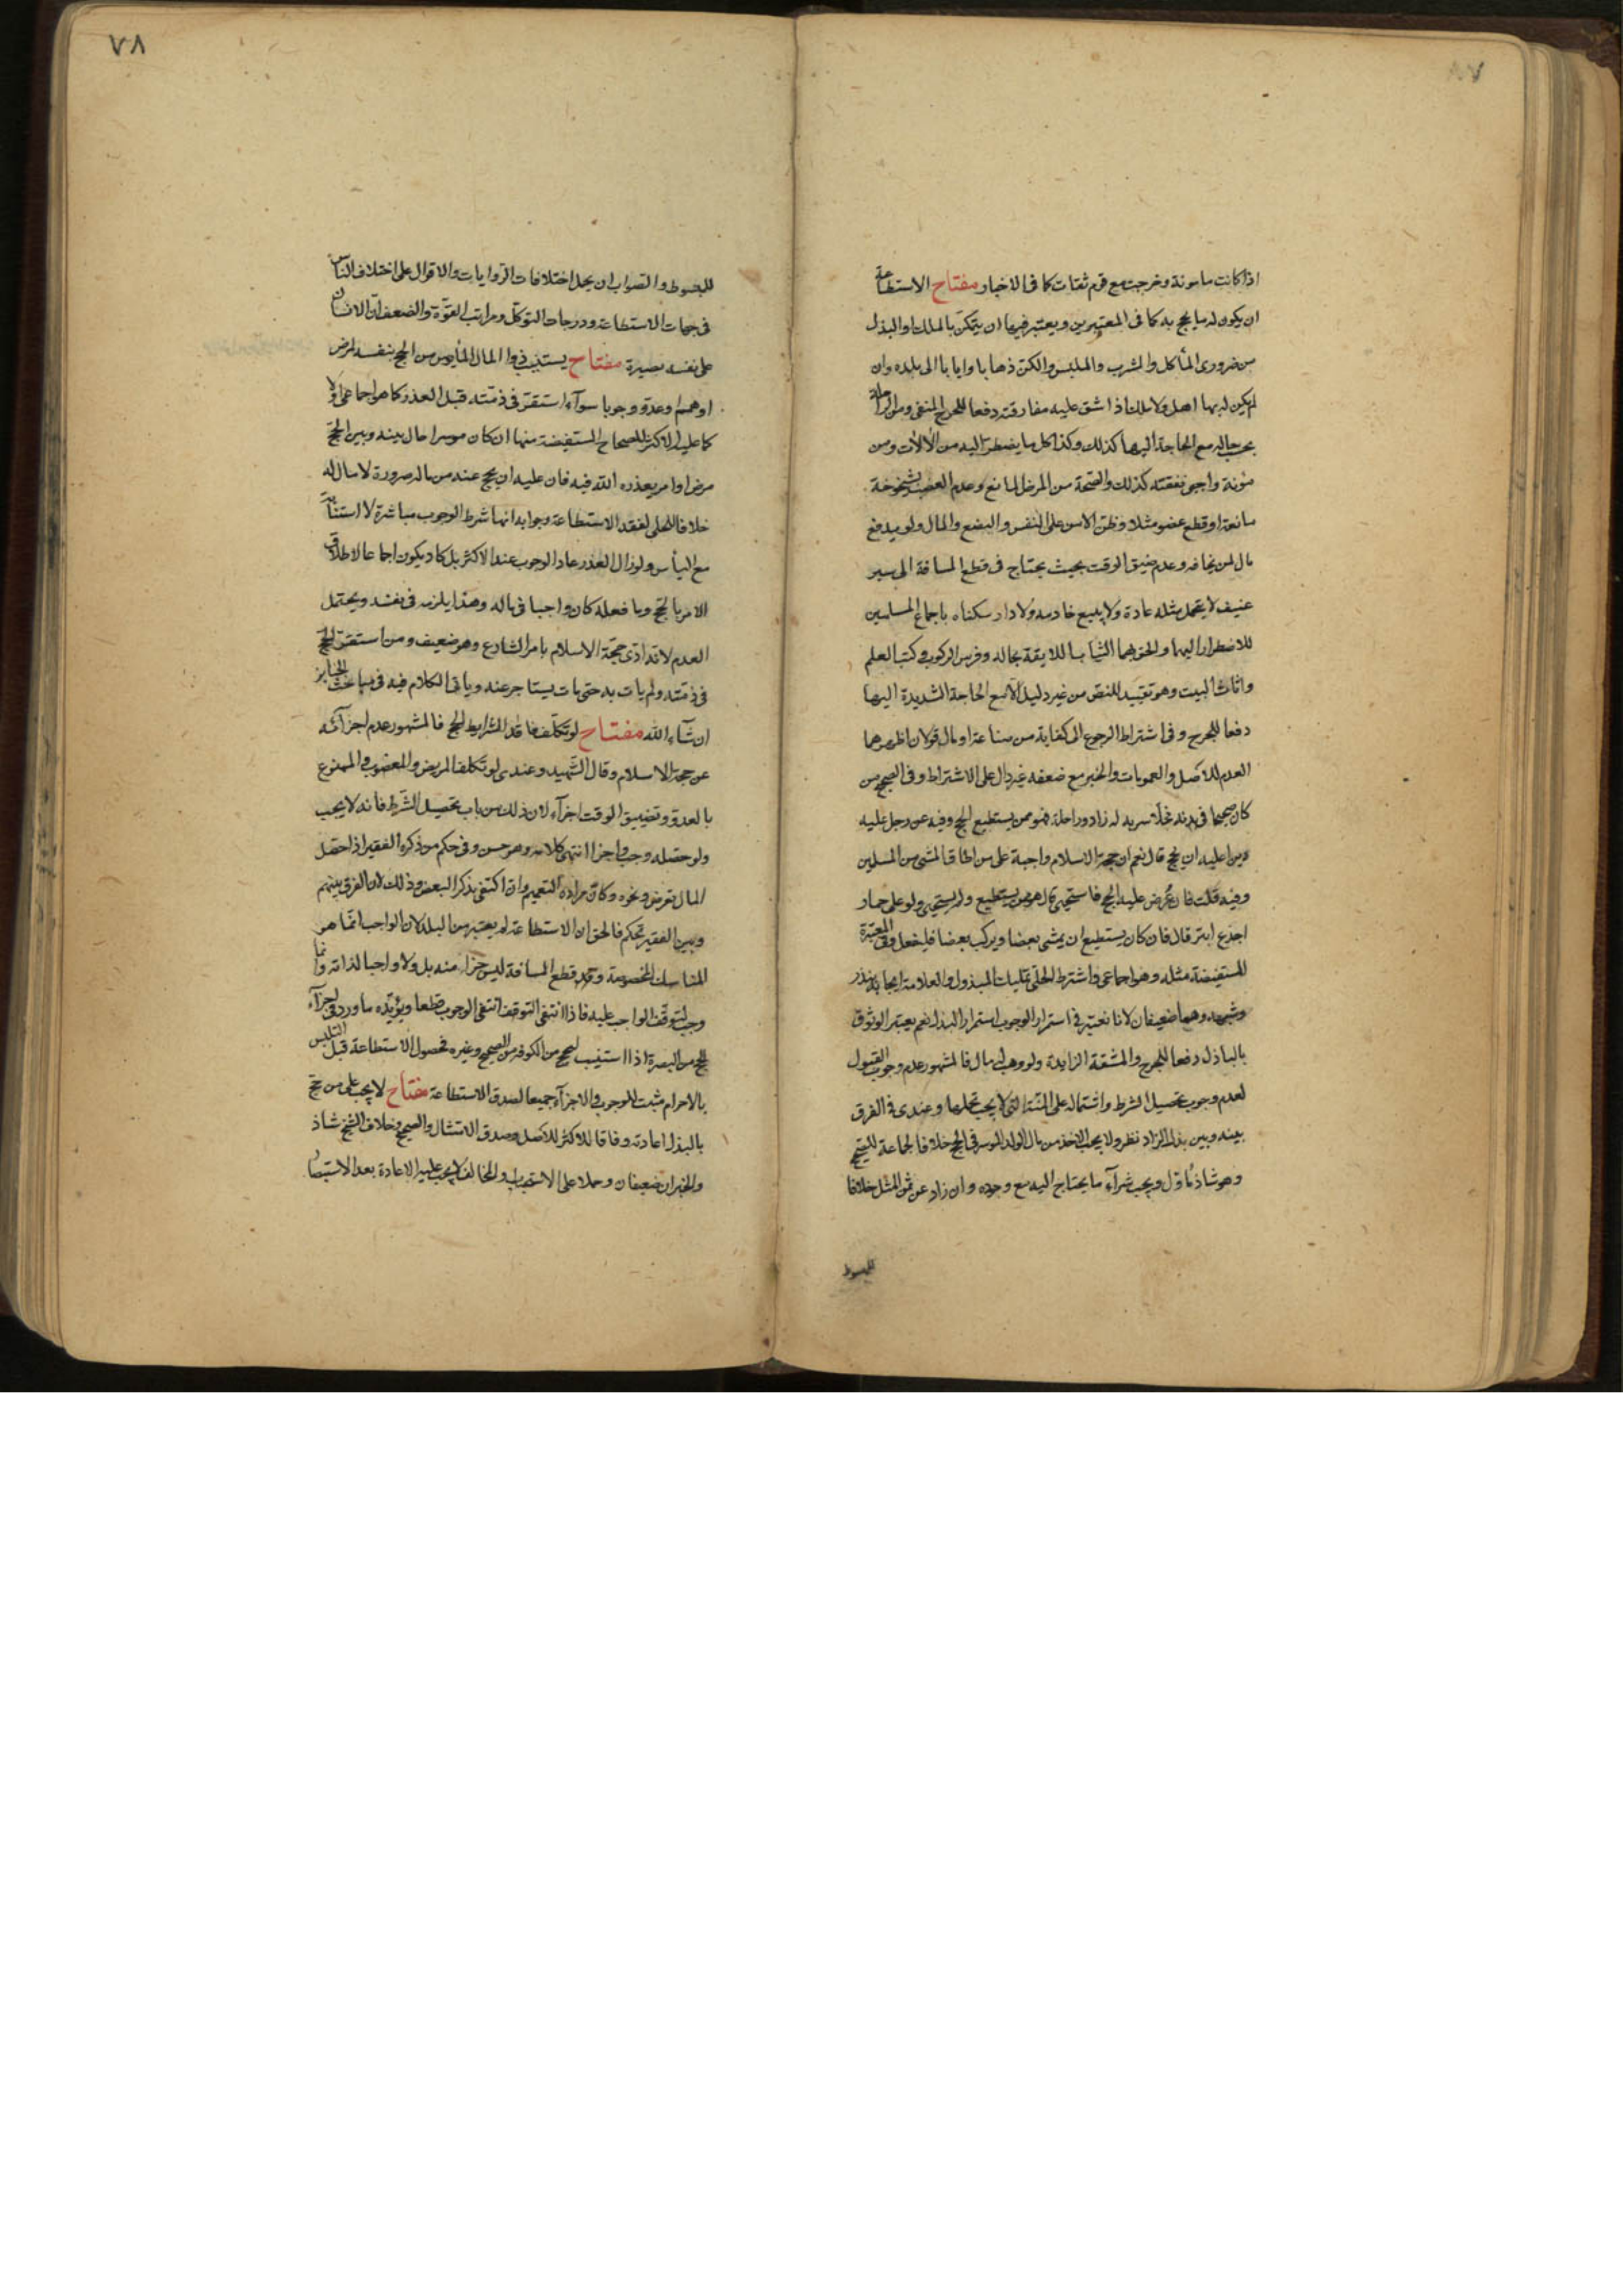 ٨٧
اذا كانت مامونة وخرجت مع قوم ثقات كما فى الاخبار مفتاح الاستطاعة
ان يكون له ما يحج به كما فى المعتبرين ويعتبر فيها ان يتمكن بالملك او البذل
من ضرورى المأكل والمشرب والملبس والكن ذهابا وايابا الى بلده وان
لم يكن له بها اهل ولا ملك اذا شق عليه مفارقته دفعا للحرج المنفى ومن الراحلة
بحسب حاله مع الحاجة اليها كذلك وكذا كل ما يضطر اليه من الالات ومن
مؤنة واجبى نفقته كذلك والصحة من المرض المانع وعدم العضب بشيخوخة
مانعة او قطع عضو مثلا وظن الامن على النفس والبضع والمال ولو بدفع
مال لمن يخافه وعدم ضيق الوقت بحيث يحتاج فى قطع المسافة الى سير
عنيف لا يتحمل مثله عادة ولا يبيع خادمه ولا دار سكناه باجماع المسلمين
للاضطرار اليها والحق بهما الثياب اللايقة بحاله وفرس الركوب وكتب العلم
واثاث البيت وهو تقييد للنص من غير دليل الا مع الحاجة الشديدة اليها
دفعا للحرج وفى اشتراط الرجوع الى كفاية من صناعة او مال قولان اظهرهما
العدم للاصل والعمومات والخبر مع ضعفه غير دال على الاشتراط وفى الصحيح من
كان صحيحا فى بدنه مخلا سربه له زاد وراحلة فهو ممن يستطيع الحج وفيه عن رجل عليه
دين اعليه ان يحج قال نعم ان حجة الاسلام واجبة على من اطاق المشى من المسلمين
وفيه قلت فان عُرض عليه الحج فاستحيى قال هو ممن يستطيع ولم يستحيى ولو على حمار
اجدع ابتر قال فان كان يستطيع ان يمشى بعضا ويركب بعضا فليفعل وفى المعتبرة
المستفيضة مثله وهو اجماعى واشترط الحلى تمليك المبذول والعلامة ايجابه بنذر
وشبهه وهما ضعيفان لانا نعتبر فى استمرار الوجوب استمرار البذل نعم يعتبر الوثوق
بالباذل دفعا للحرج والمشقة الزايدة ولو وهب له مال فالمشهور عدم وجوب القبول
لعدم وجوب تحصيل الشرط واشتماله على المنة التى لا يجب تحملها وعندى فى الفرق
بينه وبين بذل الزاد نظر ولا يجب الاخذ من مال الولد الموسر فى الحج خلافا لجماعة للصحيح
وهو شاذ مأول ويجب شرآء ما يحتاج اليه مع وجوده وان زاد عن ثمن المثل خلافا
للمبسوط
٧٨
للمبسوط والصواب ان يحمل اختلافات الروايات والاقوال على اختلاف الناس
فى جهات الاستطاعة ودرجات التوكل ومراتب القوّة والضعف انّ الانسان
على نفسه بصيرة مفتاح يستنيب ذوا المال المأيوس من الحج بنفسه لمرض
او هرم او عدو وجوبا سوآء استقر فى ذمته قبل العذر كما هو اجماعى او لا
كما عليه الاكثر للصحاح المستفيضة منها ان كان موسرا حال بينه وبين الحج
مرض او امر يعذره الله فيه فان عليه ان يحج عنه من ماله صرورة لا مال له
خلافا للحلى لفقد الاستطاعة وجوابه انها شرط الوجوب مباشرة لا استنابة
مع اليأس ولو زال العذر عاد الوجوب عند الاكثر بل كاد يكون اجماعا لاطلاق
الامر بالحج وما فعله كان واجبا فى ماله وهذا يلزمه فى نفسه ويحتمل
العدم لانه ادّى حجة الاسلام بامر الشارع وهو ضعيف ومن استقر الحج
فى ذمته ولم يات به حتى مات يستاجر عنه وياتى الكلام فيه فى مباحث الجنايز
ان شآء الله مفتاح لو تكلف فاقد الشرايط الحج فالمشهور عدم اجزآئه
عن حجة الاسلام وقال الشهيد وعندى لو تكلف المريض والمعضوب والممنوع
بالعدو وتضييق الوقت اجزآء لان ذلك من باب تحصيل الشرط فانه لا يجب
ولو حصله وجب واجزا انتهى كلامه وهو حسن وفى حكم من ذكره الفقير اذا حصل
المال بقرض ونحوه وكان مراده التعميم وان اكتفى بذكر البعض وذلك لان الفرق بينهم
وبين الفقير تحكم فالحق ان الاستطاعة لم يعتبر من البلد لان الواجب انما هو
المناسك المخصوصة وقد قطع المسافة ليس جزاء منه بل ولا واجبا لذاته وانما
وجب لتوقف الواجب عليه فاذا انتفى التوقف انتفى الوجوب قطعا ويؤيده ما ورد فى اجزآء
الحج من البصرة اذا استنيب ليحج من الكوفة من الصحيح وغيره فحصول الاستطاعة قبل التلبس
بالاحرام مثبت للوجوب والاجزآء جميعا لصدق الاستطاعة مفتاح لا يجب على من حج
بالبذل اعادته وفاقا للاكثر للاصل وصدق الامتثال والصحيح وخلاف الشيخ شاذ
والخبران ضعيفان وحملا على الاستحباب والمخالف لا يجب عليه الاعادة بعد الاستبصار